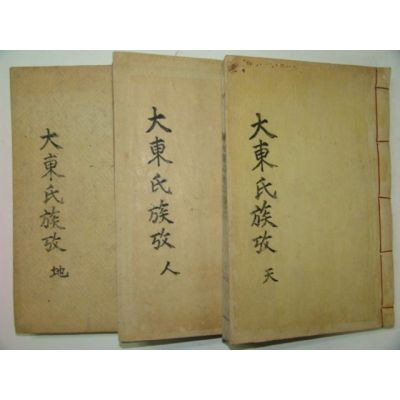 大東氏族攷 天
大東氏族攷 人
大東氏族攷 地